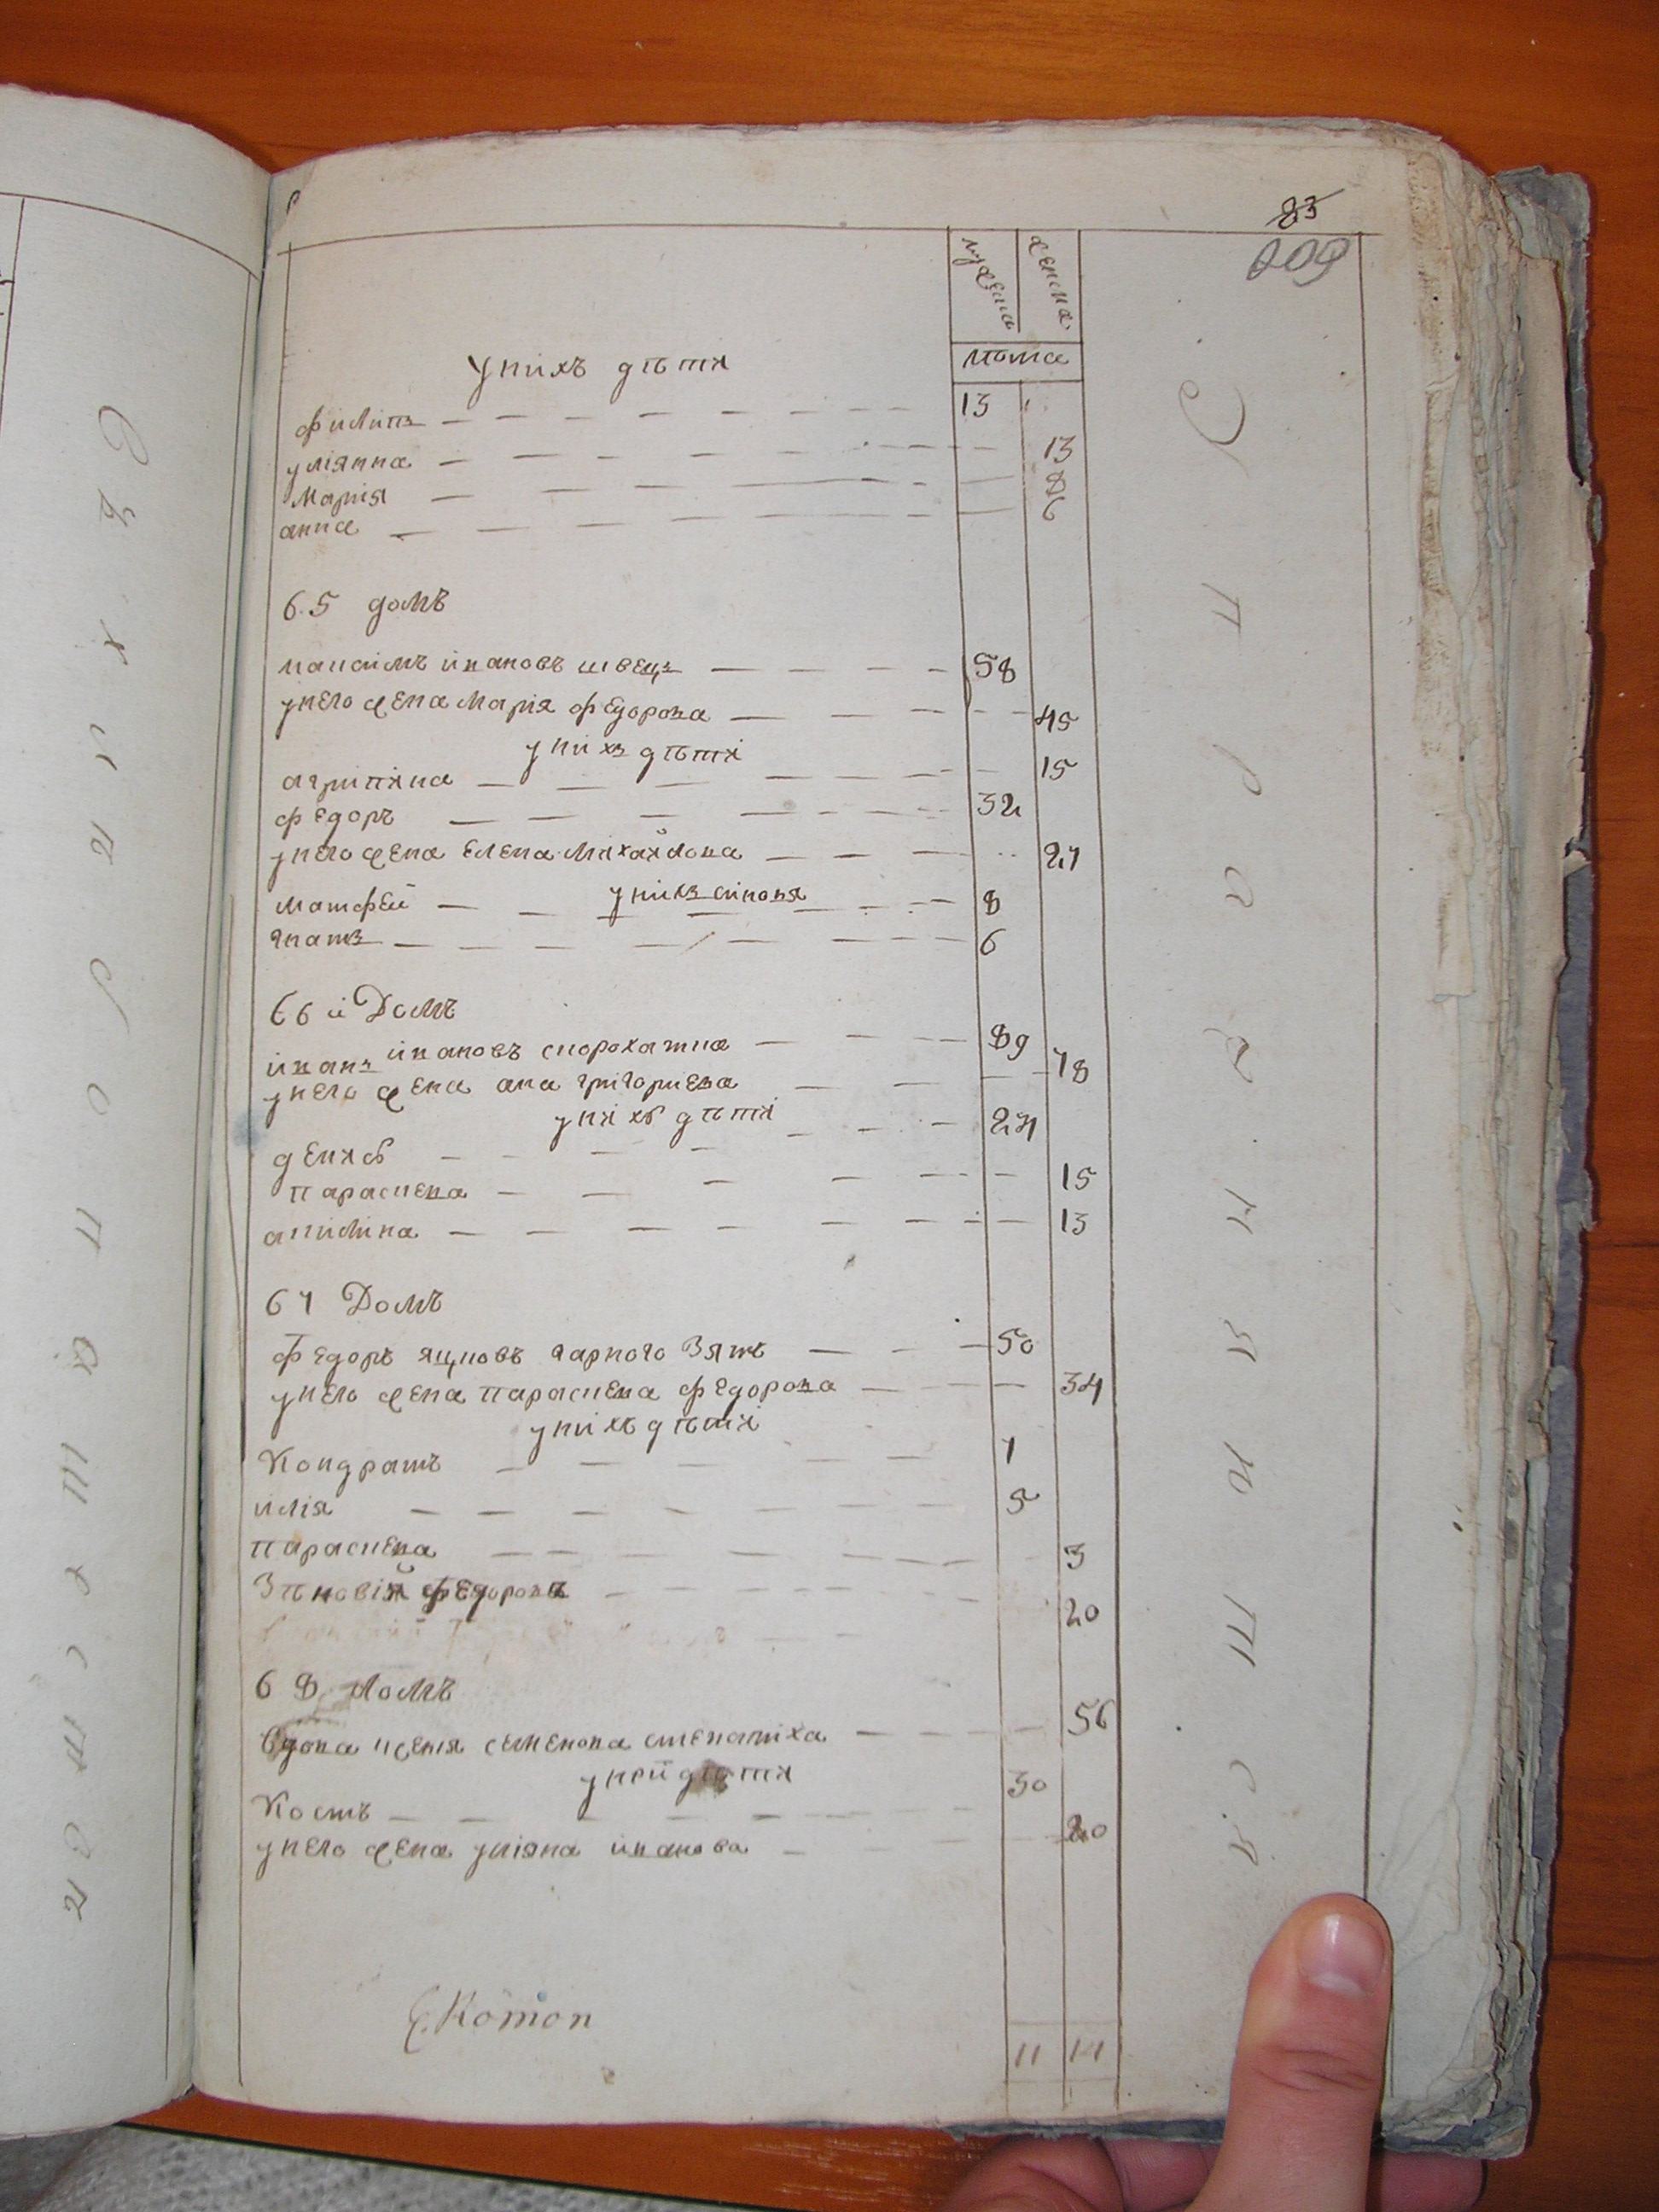 83
609
мужеска
женска
полка
У нихъ дѣти
Филипъ 13
улiянна 13
Марiя 8
анна 6
65 домъ
максимъ ивановъ швецъ 58
у него жена Марiя федорова 45
у нихъ дѣти
агрипина 15
федоръ 32
у него жена Елена Михайлова 27
у нихъ синовя
Матфей 8
Игнатъ 6
66 й Домъ
иванъ ивановъ скорохатка 89
у него жена ана григориева 78
у нихъ дѣти
денисъ 24
параскева 15
акилина 13
67 Домъ
федоръ яцковъ гарного Зять 50
у него жена параскева федорова 34
у нихъ дѣти
Кондратъ 7
илiя 5
параскева 3
Зѣновiя федорова 20
68 Домъ
Вдова ксенiя семенова степатиха 56
у неи дѣти
Костъ 30
у него жена улiяна иванова 20
11 14